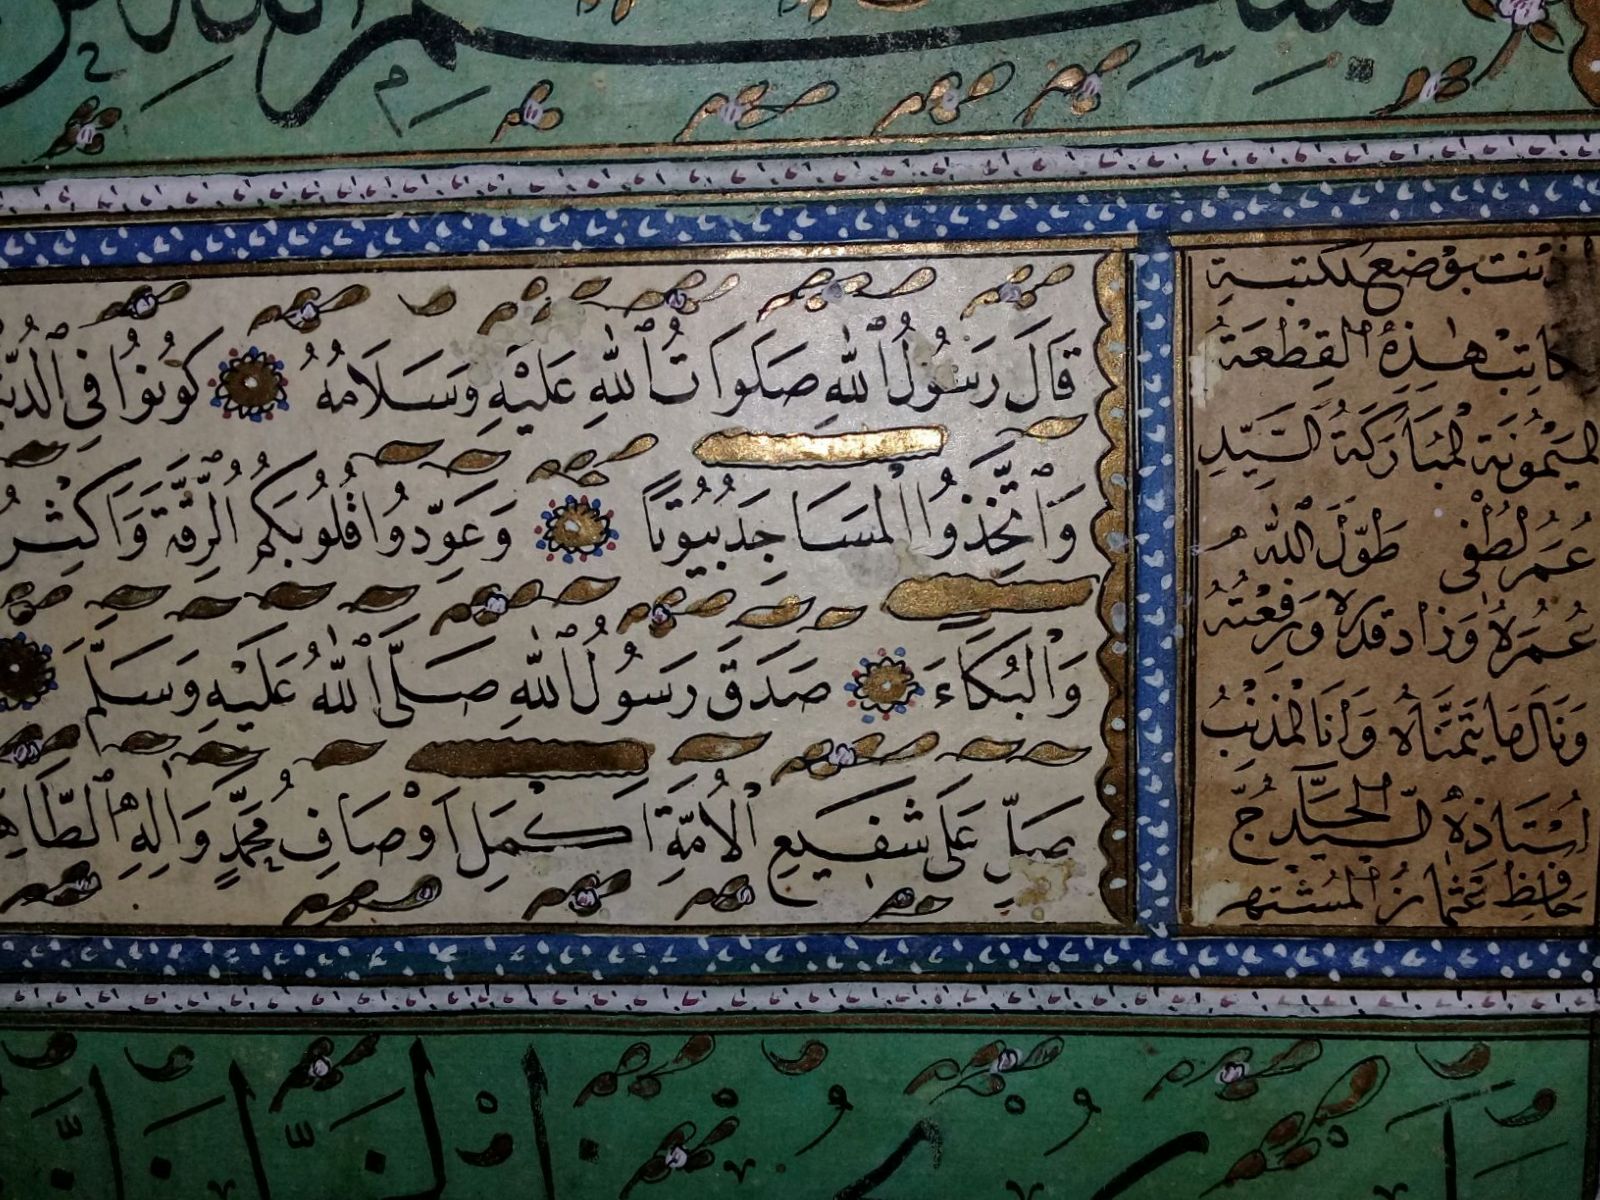 بسم الله
قَالَ رَسُولُ اللهِ صَلَوَاتُ اللهِ عَلَيْهِ وَسَلَامُهُ كُونُوا فِي الدُّنْيَا
وَاتَّخِذُوا الْمَسَاجِدَ بُيُوتًا وَعَوِّدُوا قُلُوبَكُمُ الرِّقَّةَ وَاَكْثِرُوا
وَالْبُكَاءَ صَدَقَ رَسُولُ اللهِ صَلَّى اللهُ عَلَيْهِ وَسَلَّمَ
صَلِّ عَلَى شَفِيعِ الْاُمَّةِ اَكْمَلِ اَوْصَافِ مُحَمَّدٍ وَاٰلِهِ الطَّاهِ
اذنت بوضع الكتبة
لكاتب هٰذِهِ الْقِطْعَةِ
الْمَيْمُونَةِ الْمُبَارَكَةِ السَّيِّدِ
عُمَرْ لُطْفِي طَوَّلَ اللهُ
عُمُرَهُ وَزَادَ قَدْرَهُ وَرِفْعَتَهُ
وَنَالَ مَا يَتَمَنَّاهُ وَاَنَا الْمُذْنِبُ
اُسْتَاذُهُ السَّيِّدُ الْحَاجُّ
حَافِظْ عُثْمَانُ الْمُشْتَهِر